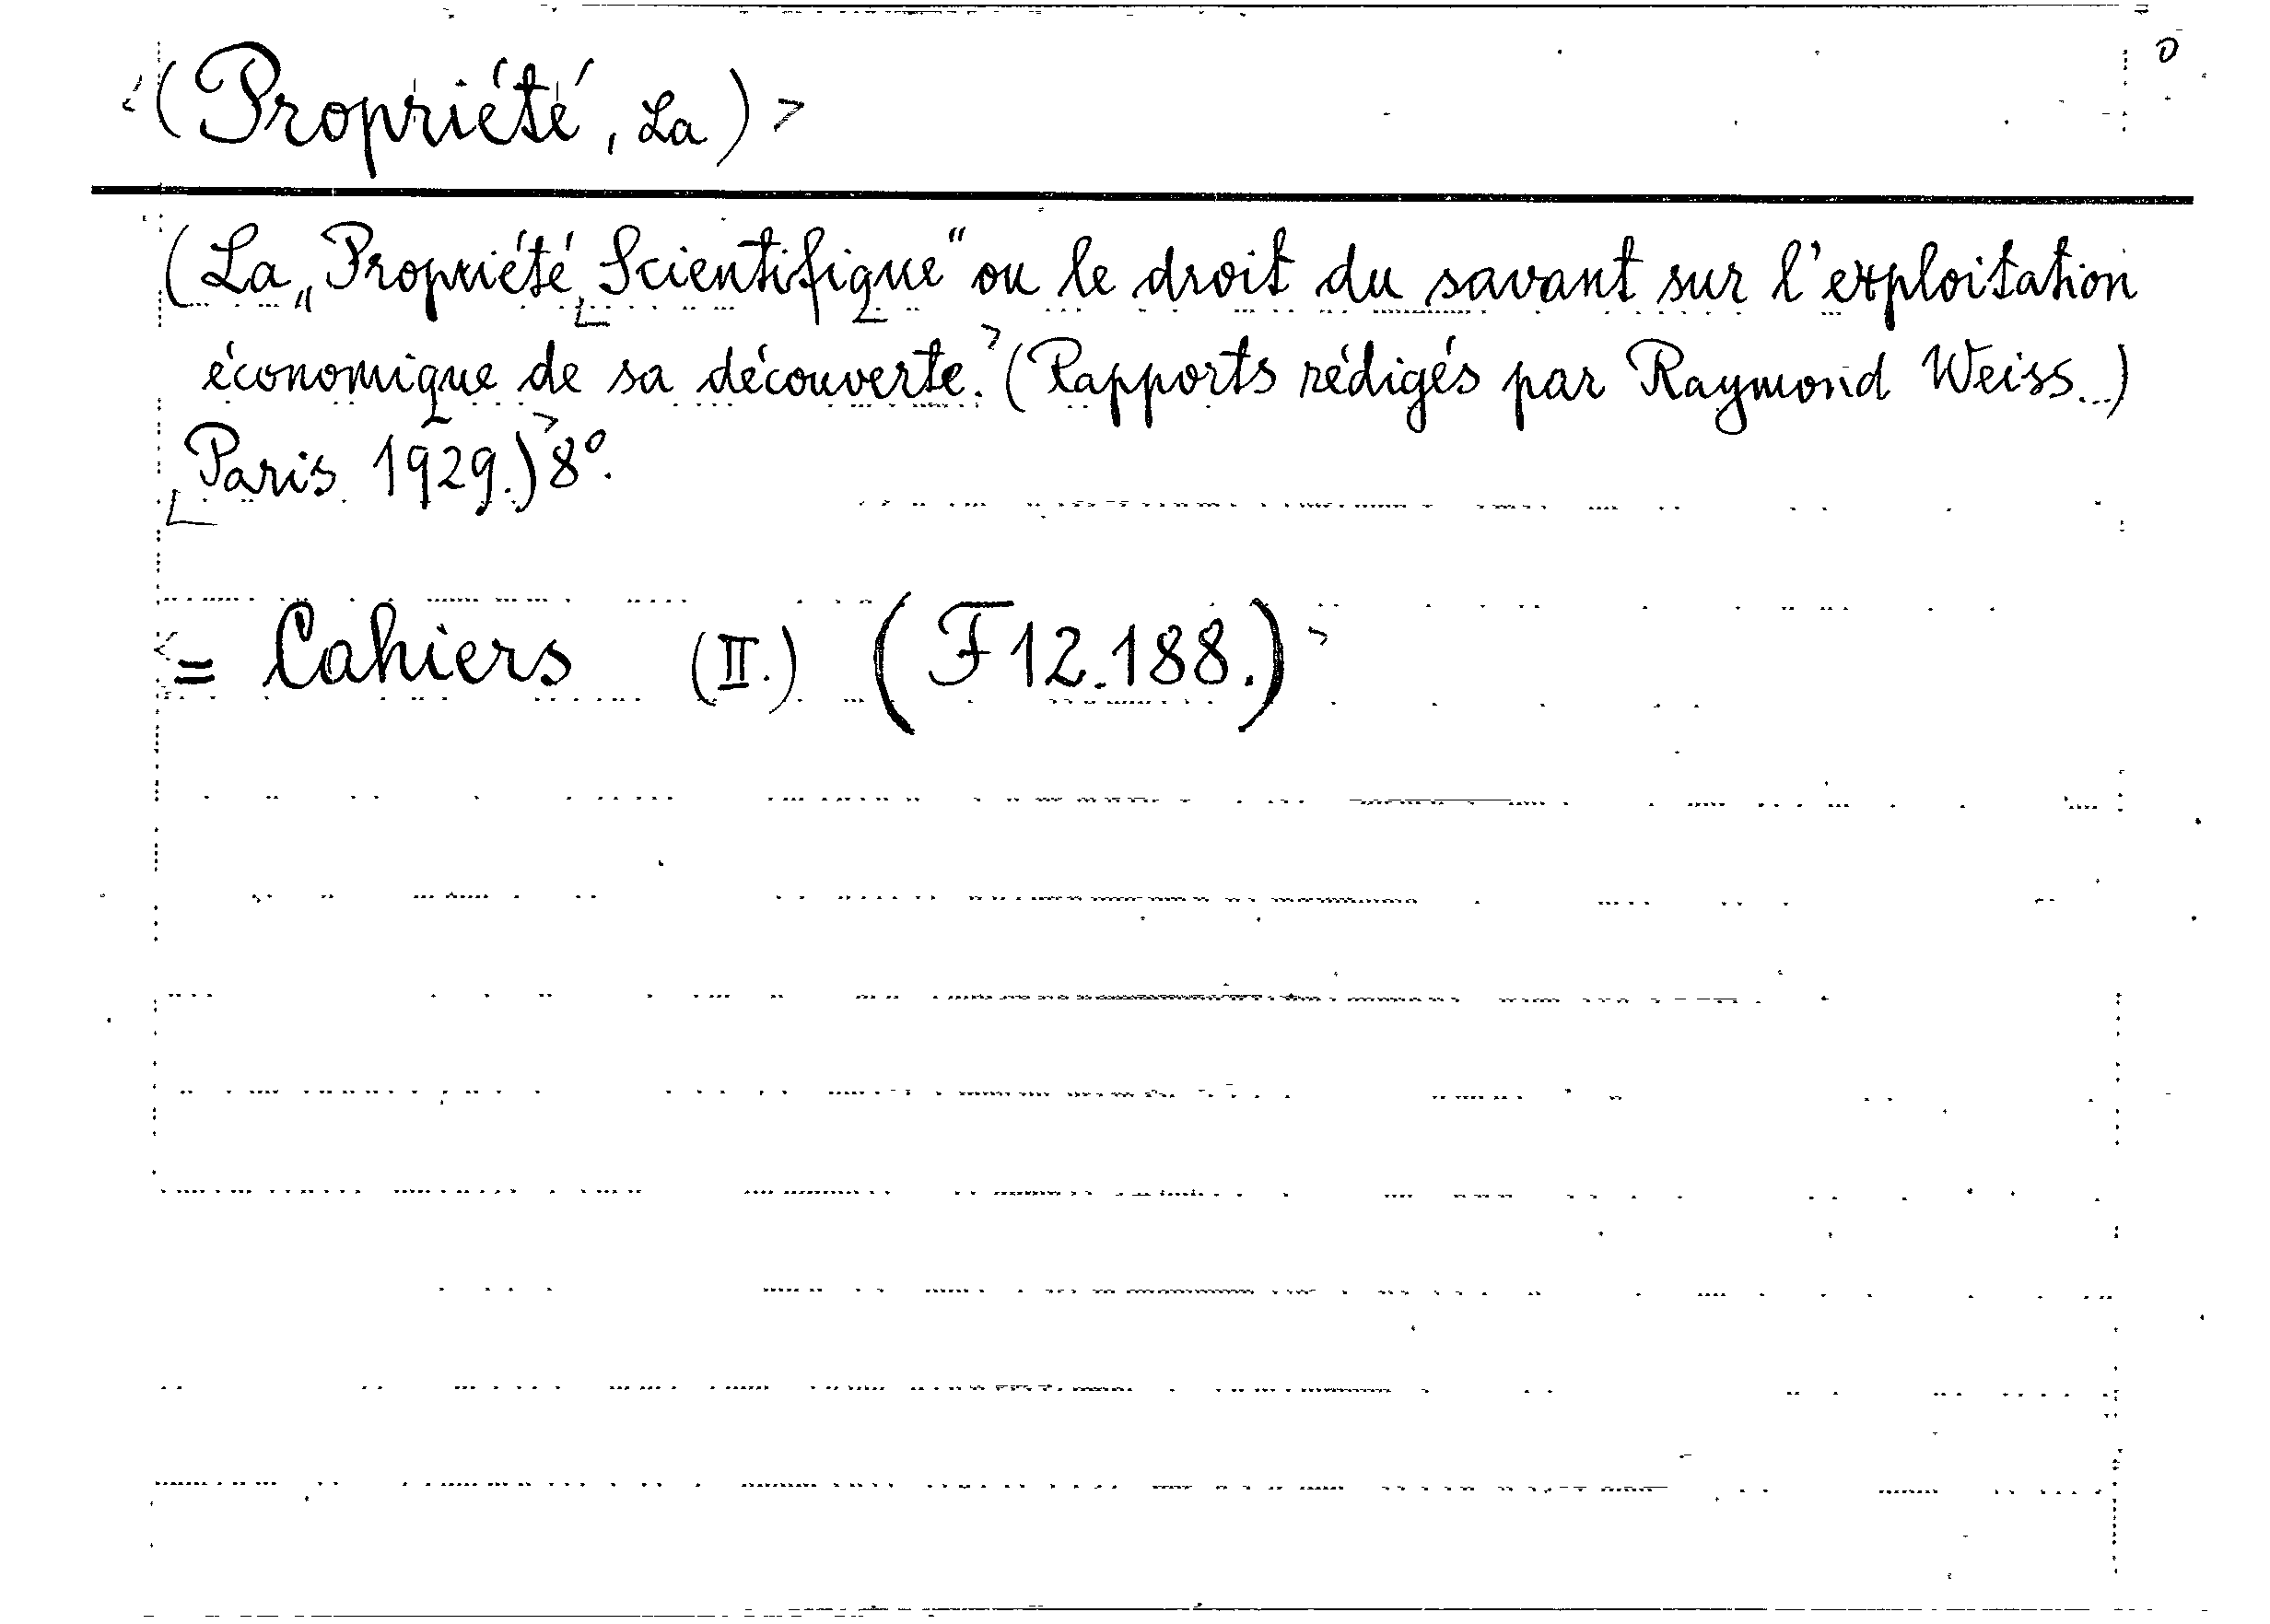 <(Propriété, La)>
o
(La „Propriété Scientifique“ ou le droit du savant sur l'exploitation
économique de sa découverte.> (Rapports rédigés par Raymond Weiss...)
Paris 1929.)> 8°.
<= Cahiers (II.) (F 12.188.)>